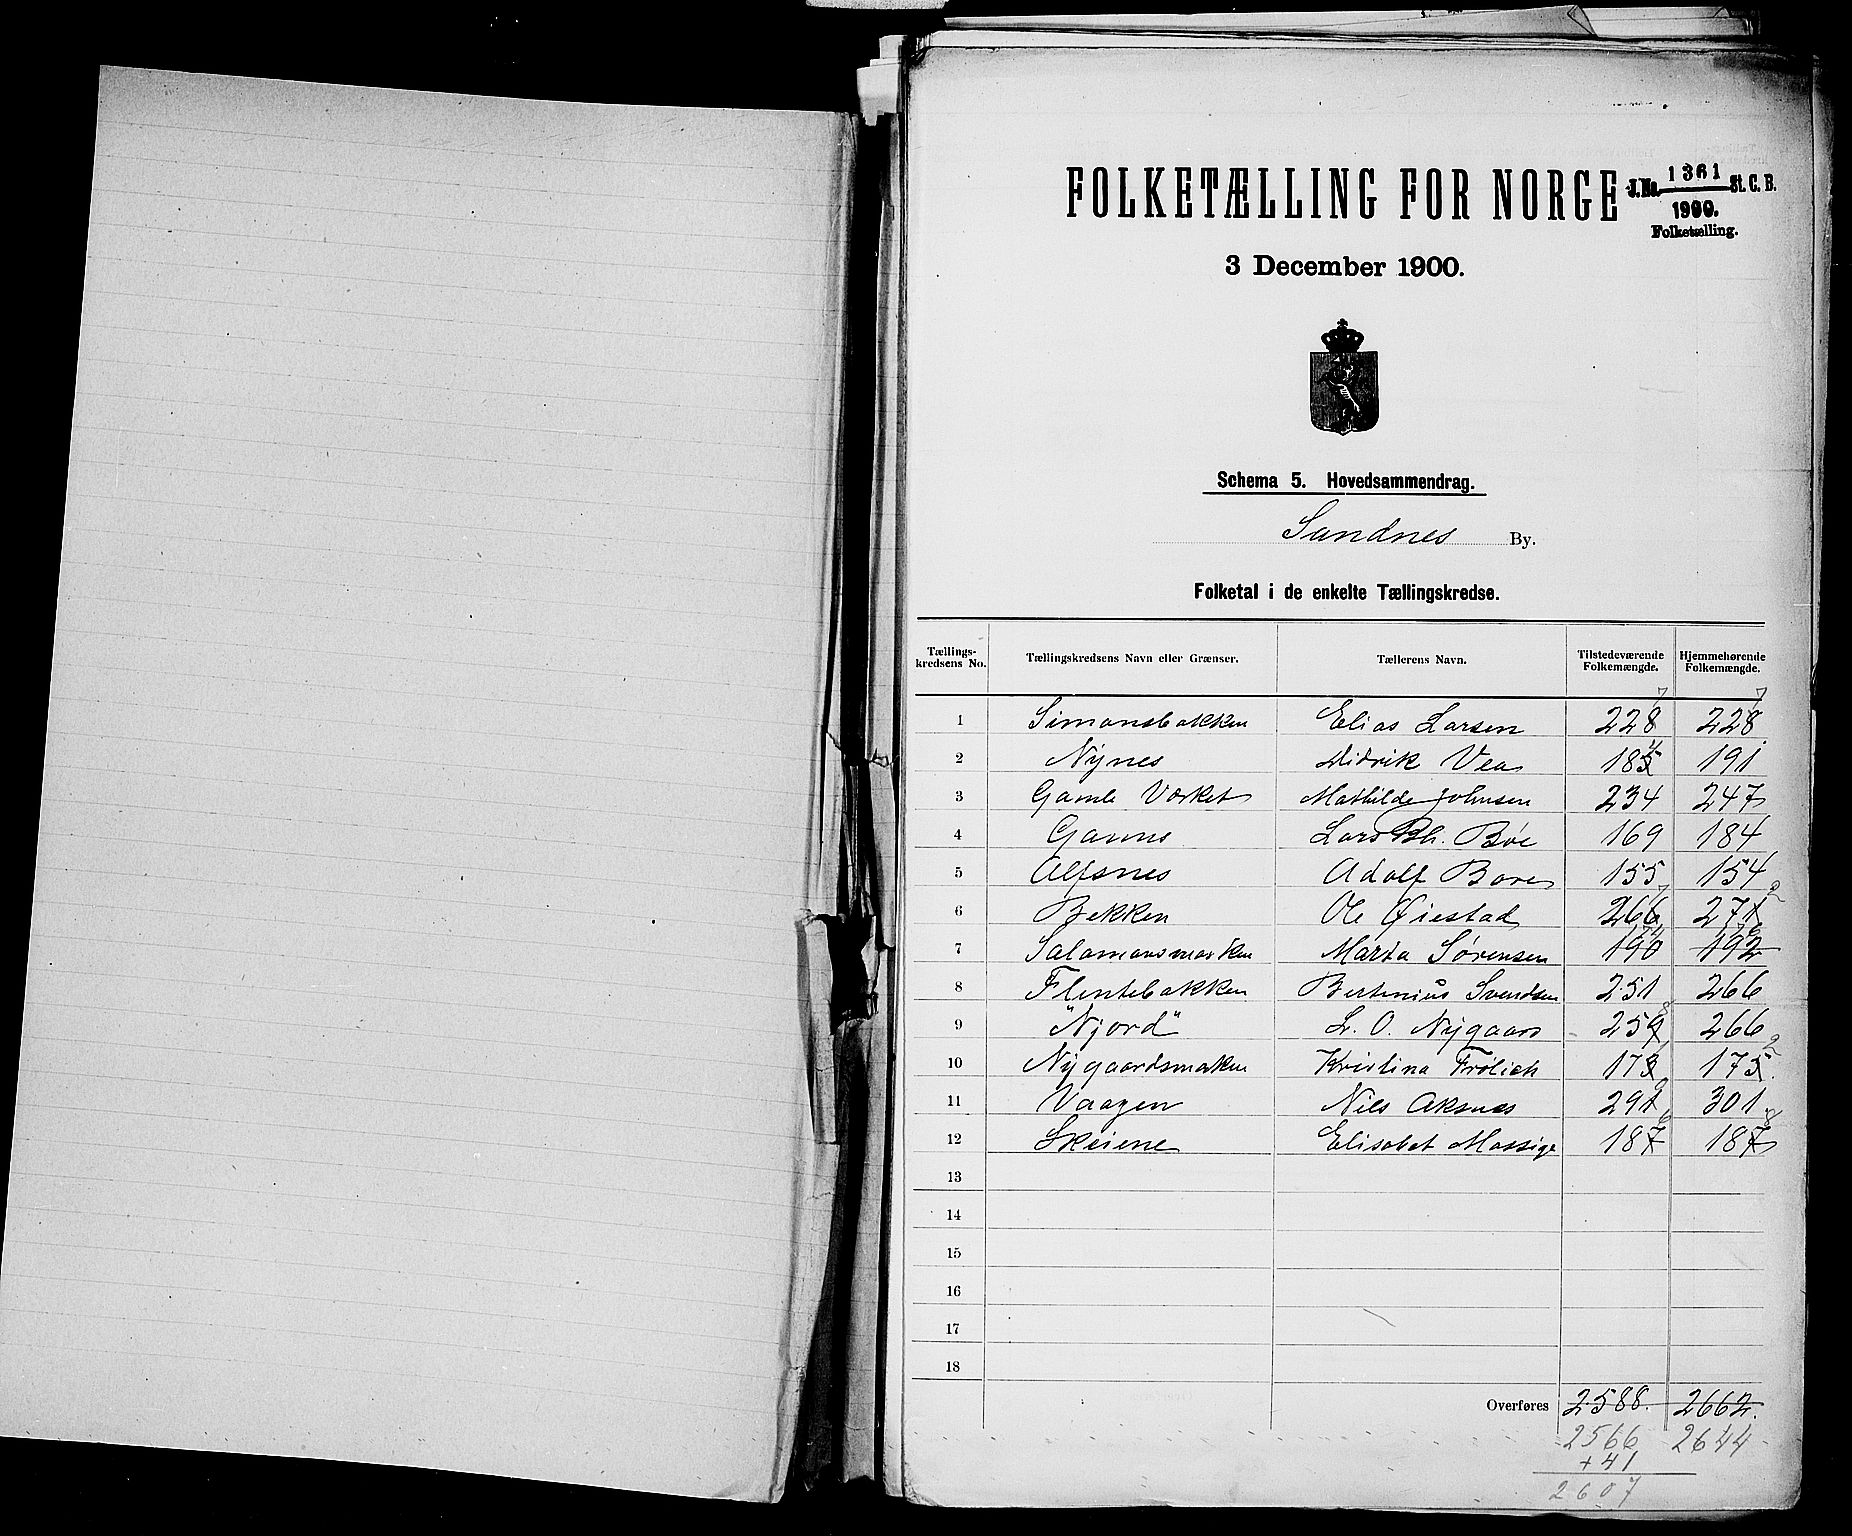 FOLKETÆLLING FOR NORGE
J.No. 1361 St. C. B.
1900.
Folketælling.
3 December 1900.
Schema 5. Hovedsammendrag.
Sandnes By.
Folketal i de enkelte Tællingskredse.
Tællings-kredsens No. Tællingskredsens Navn eller Grænser. Tællerens Navn. Tilstedeværende Folkemængde. Hjemmehørende Folkemængde.
1 Simonsbakken Elias Larsen 228 228
2 Nynes Didrik Vea 185 191
3 Gamle Værket Mathilde Johnsen 234 247
4 Ganns Lars Bh. Bøe 169 184
5 Alfsnes Adolf Bore 155 154
6 Bekken Ole Øiestad 266 271
7 Salamonsmarken Marta Sørensen 190 192
8 Flintebakken Bertinius Svendsen 251 266
9 "Njord" L. O. Nygaard 259 266
10 Nygaardsmarken Kristina Frølich 173 175
11 Vaagen Nils Aksnes 291 301
12 Skeiene Elisabet Massige 187 187
13
14
15
16
17
18
Overføres 2588. 2662.
2566 2644
+41
2607